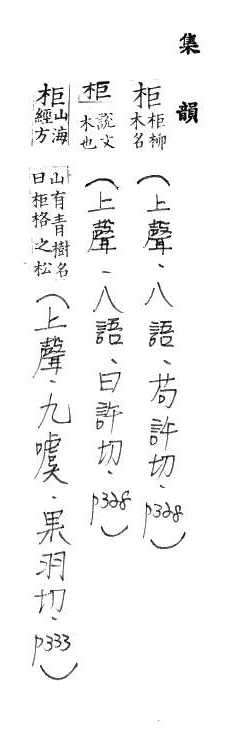 集韻
柜柜柳木名(上聲、八語、苟許切、p328)
柜說文木也(上聲、八語、曰許切、p328)
柜山海經方山有青樹名曰柜格之松(上聲、九噳、果羽切、p333)